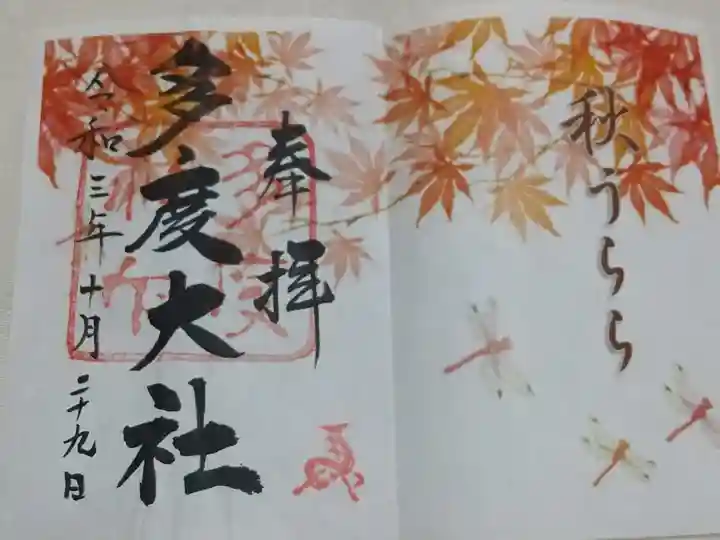 秋うらら
奉拝
多度大社
令和三年十月二十九日